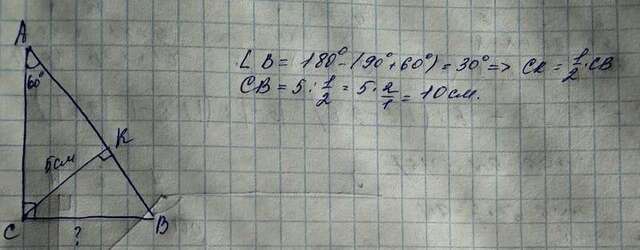 A
60°
K
5см
C
?
B
∠B = 180° - (90° + 60°) = 30° => CK = 1/2 · CB
CB = 5 : 1/2 = 5 · 2/1 = 10 см.